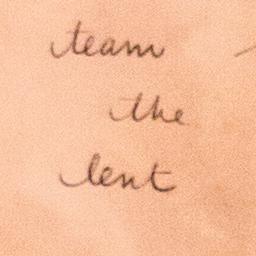 team
the
lent